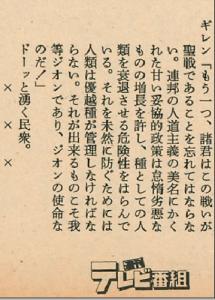 ギレン「もう一つ、諸君はこの戦いが
聖戦であることを忘れてはならな
い。連邦の人道主義の美名にかく
れた甘い妥協的政策は怠惰劣悪な
ものの増長を許し、種としての人
類を衰退させる危険性をはらんで
いる。それを未然に防ぐためには
人類は優越種が管理しなければな
らない。それが出来るものこそ我
等ジオンであり、ジオンの使命な
のだ！」
ドーッと湧く民衆。
×　×　×
週刊
テレビ番組